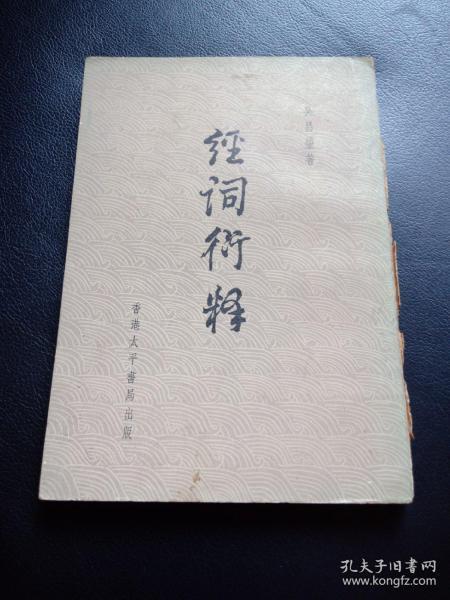 吳昌瑩著
經詞衍释
香港太平書局出版
孔夫子旧书网
www.kongfz.com